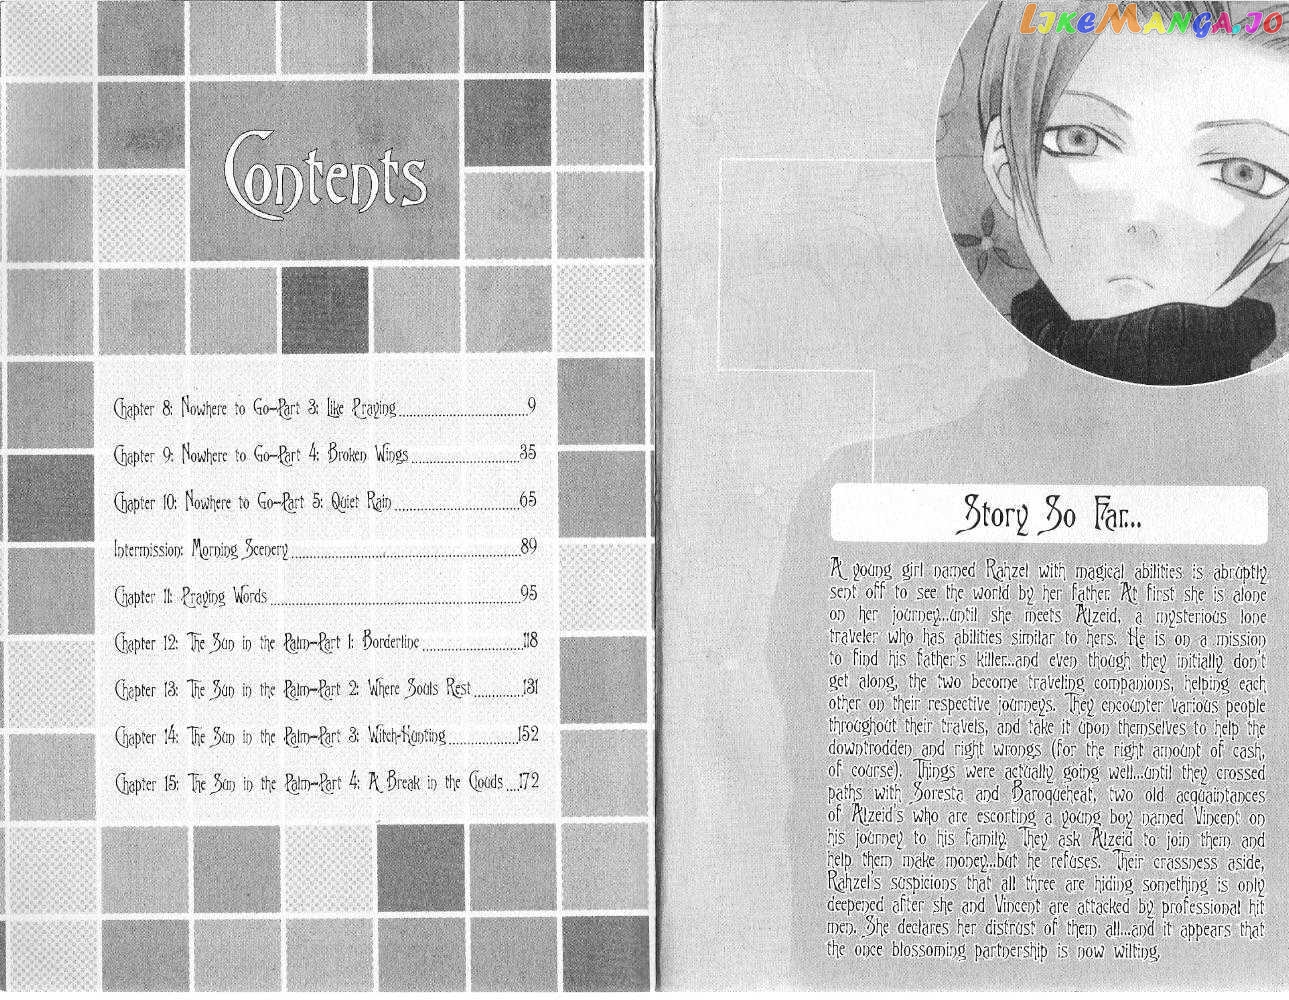 LIKEMANGA.IO
Contents
Chapter 8: Nowhere to Go—Part 3: Like Praying..........9
Chapter 9: Nowhere to Go—Part 4: Broken Wings..........35
Chapter 10: Nowhere to Go—Part 5: Quiet Rain..........65
Intermission: Morning Scenery..........89
Chapter 11: Praying Words..........95
Chapter 12: The Sun in the Palm—Part 1: Borderline..........118
Chapter 13: The Sun in the Palm—Part 2: Where Souls Rest..........131
Chapter 14: The Sun in the Palm—Part 3: Witch-Hunting..........152
Chapter 15: The Sun in the Palm—Part 4: A Break in the Clouds....172
Story So Far...
A young girl named Rahzel with magical abilities is abruptly
sent off to see the world by her father. At first she is alone
on her journey...until she meets Alzeid, a mysterious lone
traveler who has abilities similar to hers. He is on a mission
to find his father's killer...and even though they initially don't
get along, the two become traveling companions, helping each
other on their respective journeys. They encounter various people
throughout their travels, and take it upon themselves to help the
downtrodden and right wrongs (for the right amount of cash,
of course). Things were actually going well...until they crossed
paths with Soresta and Baroqueheat, two old acquaintances
of Alzeid's who are escorting a young boy named Vincent on
his journey to his family. They ask Alzeid to join them and
help them make money...but he refuses. Their crassness aside,
Rahzel's suspicions that all three are hiding something is only
deepened after she and Vincent are attacked by professional hit
men. She declares her distrust of them all...and it appears that
the once blossoming partnership is now wilting.